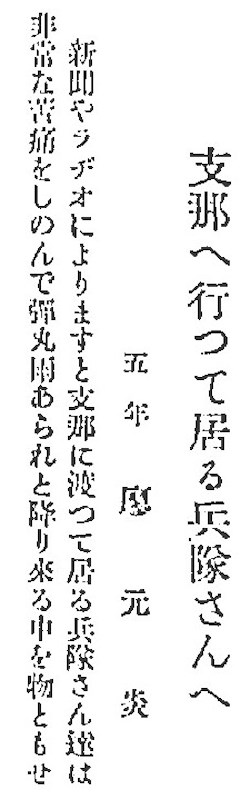 支那へ行つて居る兵隊さんへ
五年 廖元炎
新聞やラヂオによりますと支那に渡つて居る兵隊さん達は
非常な苦痛をしのんで彈丸雨あられと降り來る中を物ともせ